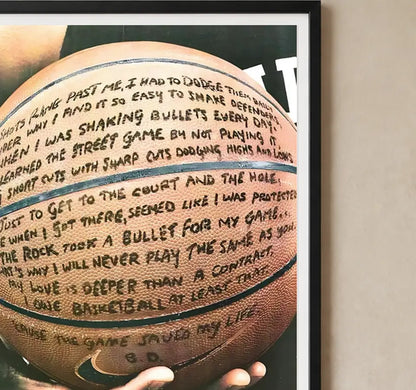 SHOTS FLYING PAST ME, I HAD TO DODGE THEM DAILY
WHY I FIND IT SO EASY TO SHAKE DEFENDERS
WHEN I WAS SHAKING BULLETS EVERY DAY.
LEARNED THE STREET GAME BY NOT PLAYING IT,
SHORT CUTS WITH SHARP CUTS DODGING HIGHS AND LOWS
JUST TO GET TO THE COURT AND THE HOLE.
WHEN I GOT THERE, SEEMED LIKE I WAS PROTECTED
THE ROCK TOOK A BULLET FOR MY GAME...
THAT'S WHY I WILL NEVER PLAY THE SAME AS YOU.
MY LOVE IS DEEPER THAN A CONTRACT,
I OWE BASKETBALL AT LEAST THAT.
'CAUSE THE GAME SAVED MY LIFE.
B.D.